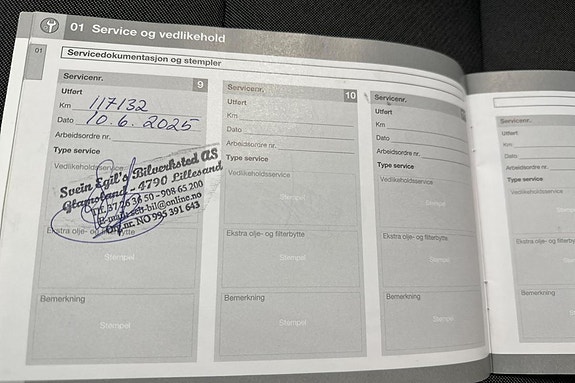 01 Service og vedlikehold
01
Servicedokumentasjon og stempler
Servicenr. 9
Utført
Km 117132
Dato 10.6.2025
Arbeidsordre nr.
Type service
Vedlikeholdsservice
Svein Egil's Bilverksted AS
Glamsland - 4790 Lillesand
Tlf. 37 26 36 50 - 908 65 200
Org.nr. NO 995 391 643
Ekstra olje- og filterbytte
Stempel
Bemerkning
Stempel
Servicenr. 10
Utført
Km
Dato
Arbeidsordre nr.
Type service
Vedlikeholdsservice
Stempel
Ekstra olje- og filterbytte
Stempel
Bemerkning
Stempel
Servicenr.
Utført
Km
Dato
Arbeidsordre nr.
Type service
Vedlikeholdsservice
Stempel
Ekstra olje- og filterbytte
Stempel
Bemerkning
Stempel
Servicenr.
Utført
Km
Dato
Arbeidsordre nr.
Type service
Vedlikeholdsservice
Ekstra olje- og
Bemerkning